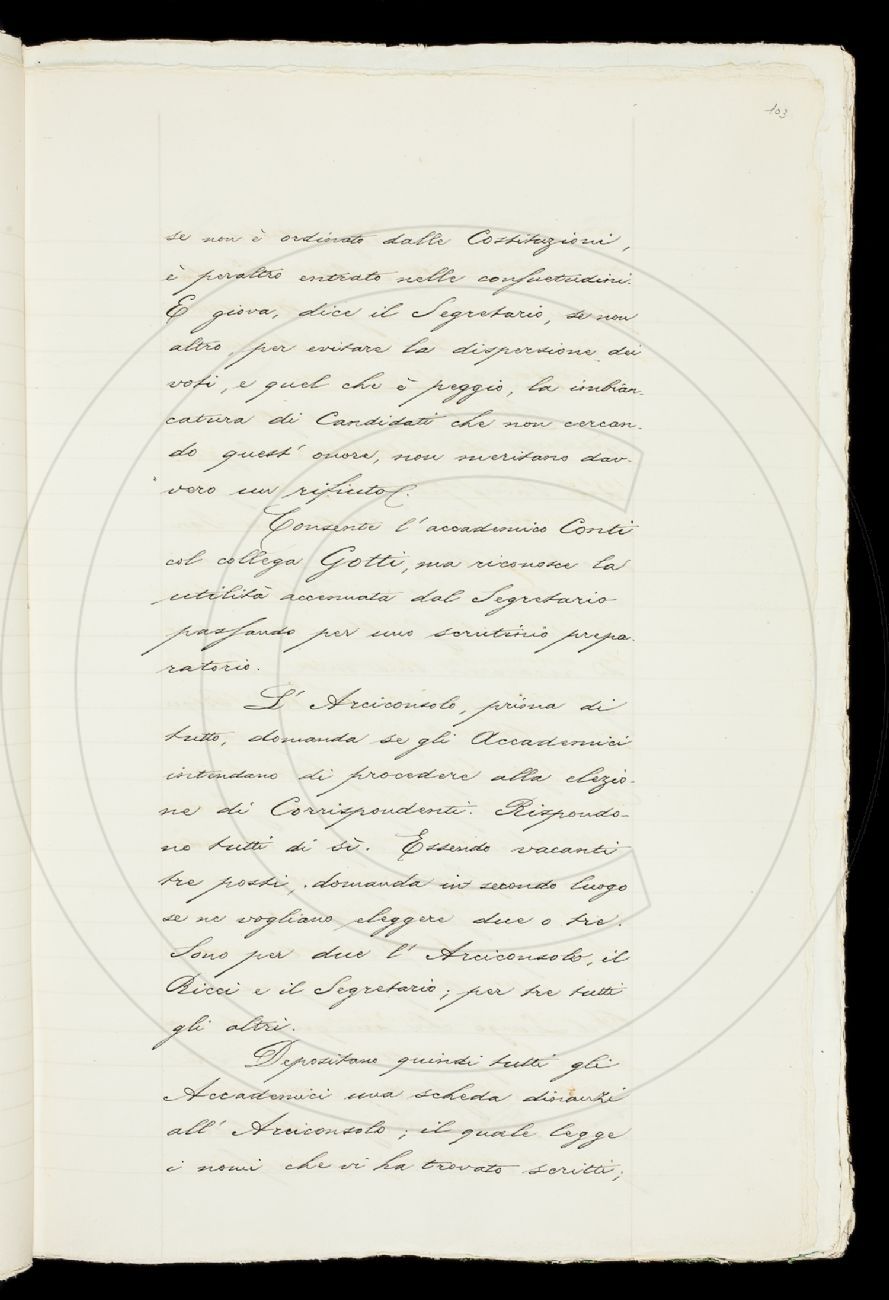 103
se non è ordinato dalle Costituzioni,
è peraltro entrato nelle consuetudini.
E giova, dice il Segretario, se non
altro, per evitare la dispersione dei
voti, e quel che è peggio, la imbian-
catura di Candidati che non cercan-
do quest' onore, non meritano dav-
vero un rifiuto.
Consente l' accademico Conti
col collega Gotti, ma riconosce la
utilità accennata dal Segretario
passando per uno scrutinio prepa-
ratorio.
L' Arciconsolo, prima di
tutto, domanda se gli Accademici
intendano di procedere alla elezio-
ne di Corrispondenti. Rispondo-
no tutti di sì. Essendo vacanti
tre posti, domanda in secondo luogo
se ne vogliano eleggere due o tre.
Sono per due l' Arciconsolo, il
Ricci e il Segretario; per tre tutti
gli altri.
Depositano quindi tutti gli
Accademici una scheda dinanzi
all' Arciconsolo; il quale legge
i nomi che vi ha trovato scritti;